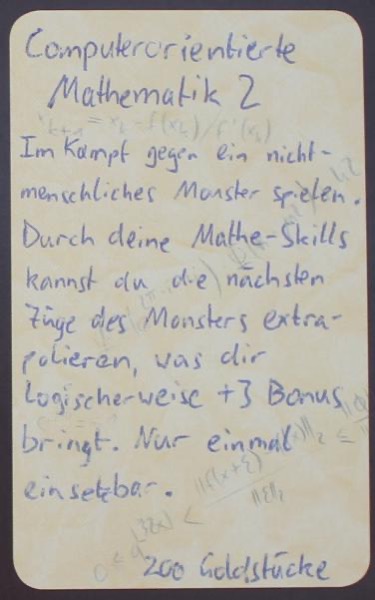 Computerorientierte
Mathematik 2
x_{k+1} = x_k - f(x_k)/f'(x_k)
Im Kampf gegen ein nicht-
menschliches Monster spielen.
Durch deine Mathe-Skills
kannst du die nächsten
Züge des Monsters extra-
polieren, was dir
logischerweise +3 Bonus
bringt. Nur einmal
einsetzbar.
200 Goldstücke